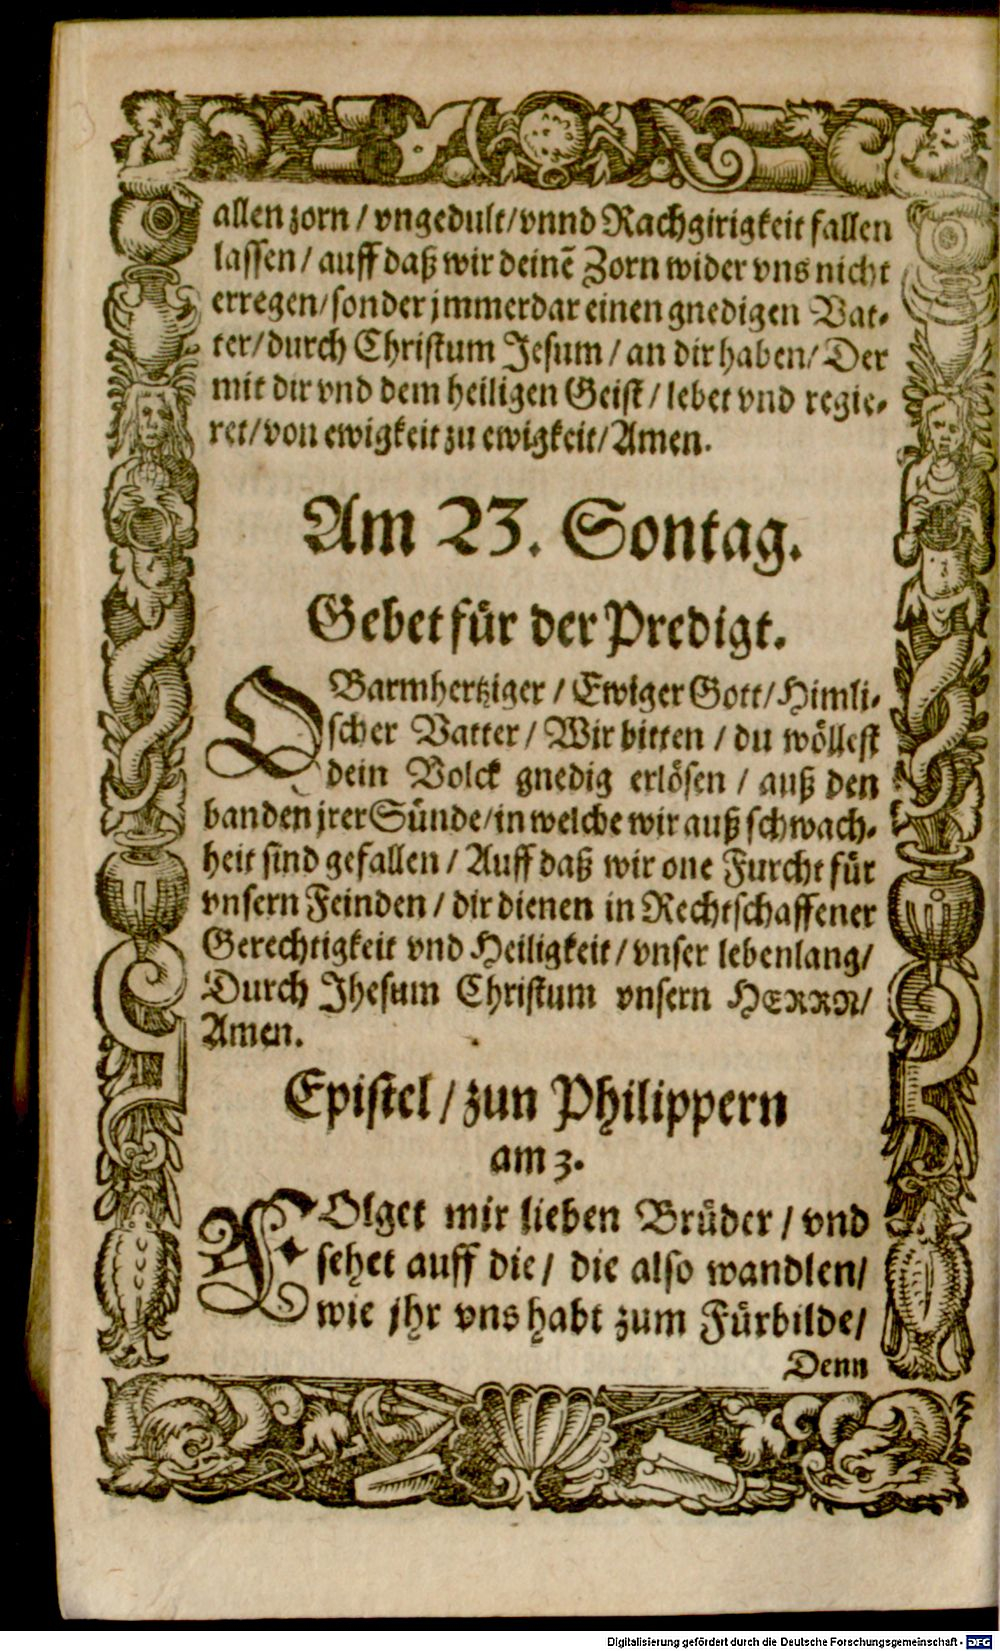 allen zorn / vngedult / vnnd Rachgirigkeit fallen
lassen / auff daß wir deinē Zorn wider vns nicht
erregen / sonder jmmerdar einen gnedigen Vat-
ter / durch Christum Jesum / an dir haben / Der
mit dir vnd dem heiligen Geist / lebet vnd regie-
ret / von ewigkeit zu ewigkeit / Amen.
Am 23. Sontag.
Gebet für der Predigt.
O Barmhertziger / Ewiger Gott / Himli-
scher Vatter / Wir bitten / du wöllest
dein Volck gnedig erlösen / auß den
banden jrer Sünde / in welche wir auß schwach-
heit sind gefallen / Auff daß wir one Furcht für
vnsern Feinden / dir dienen in Rechtschaffener
Gerechtigkeit vnd Heiligkeit / vnser lebenlang /
Durch Jhesum Christum vnsern HERRN /
Amen.
Epistel / zun Philippern
am 3.
FOlget mir lieben Brüder / vnd
sehet auff die / die also wandlen /
wie jhr vns habt zum Fürbilde /
Denn
Digitalisierung gefördert durch die Deutsche Forschungsgemeinschaft - DFG